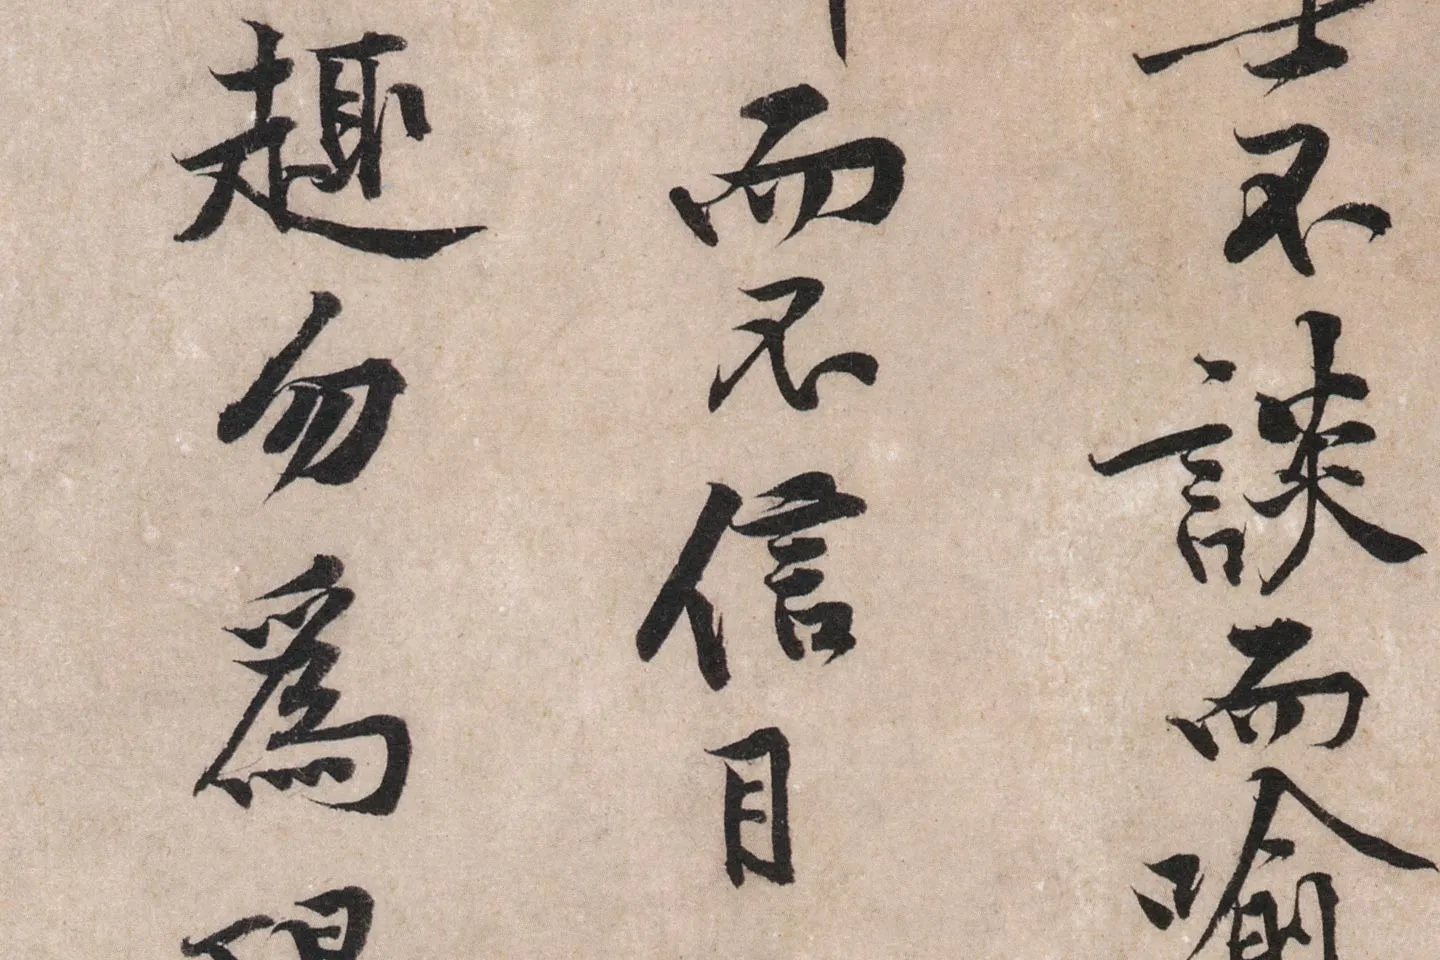 不談而喻
而不信目
趣勿爲